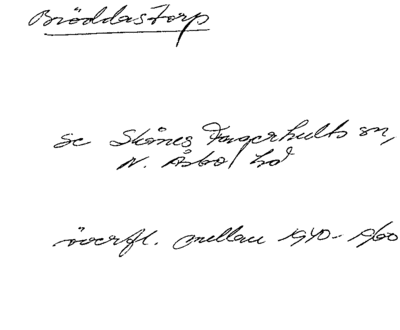 Bröddastorp
se Skånes Fagerhults sn,
N. Åsbo hd
överfl. mellan 1940-1960